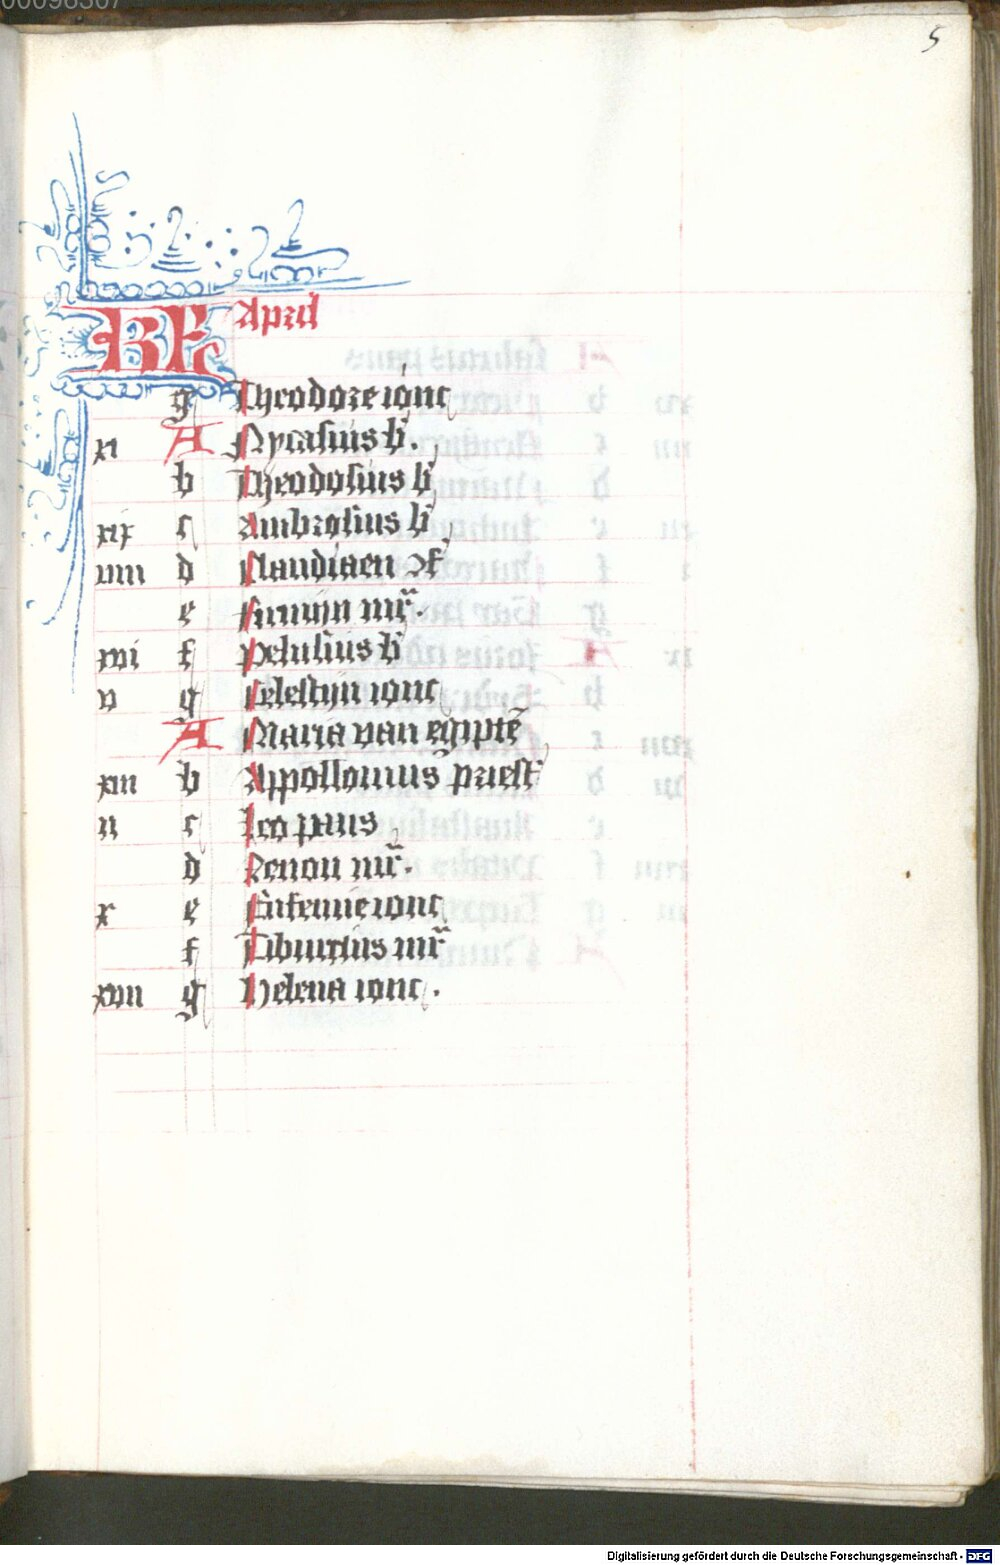 00098367
5
KL April
g Theodore ionc
xi A Nycasius b.
b Theodosius b
xix c Ambrosius b
viii d Claudiaen
e Sixtijn mr.
xvi f Pelusius b
v g Celestijn ionc
A Maria van egipte
xiii b Appollonius priest
ii c Leo paus
d Zenon mr.
x e Eufemie ionc
f Tiburtius mr
xviii g Helena ionc.
Digitalisierung gefördert durch die Deutsche Forschungsgemeinschaft - DFG